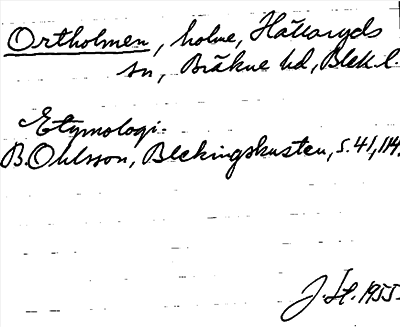 Ortholmen, holme, Hällaryds
sn, Bräkne hd, Blek. l.
Etymologi:
B. Ohlsson, Blekingskusten, s. 41, 114.
J. H. 1955.